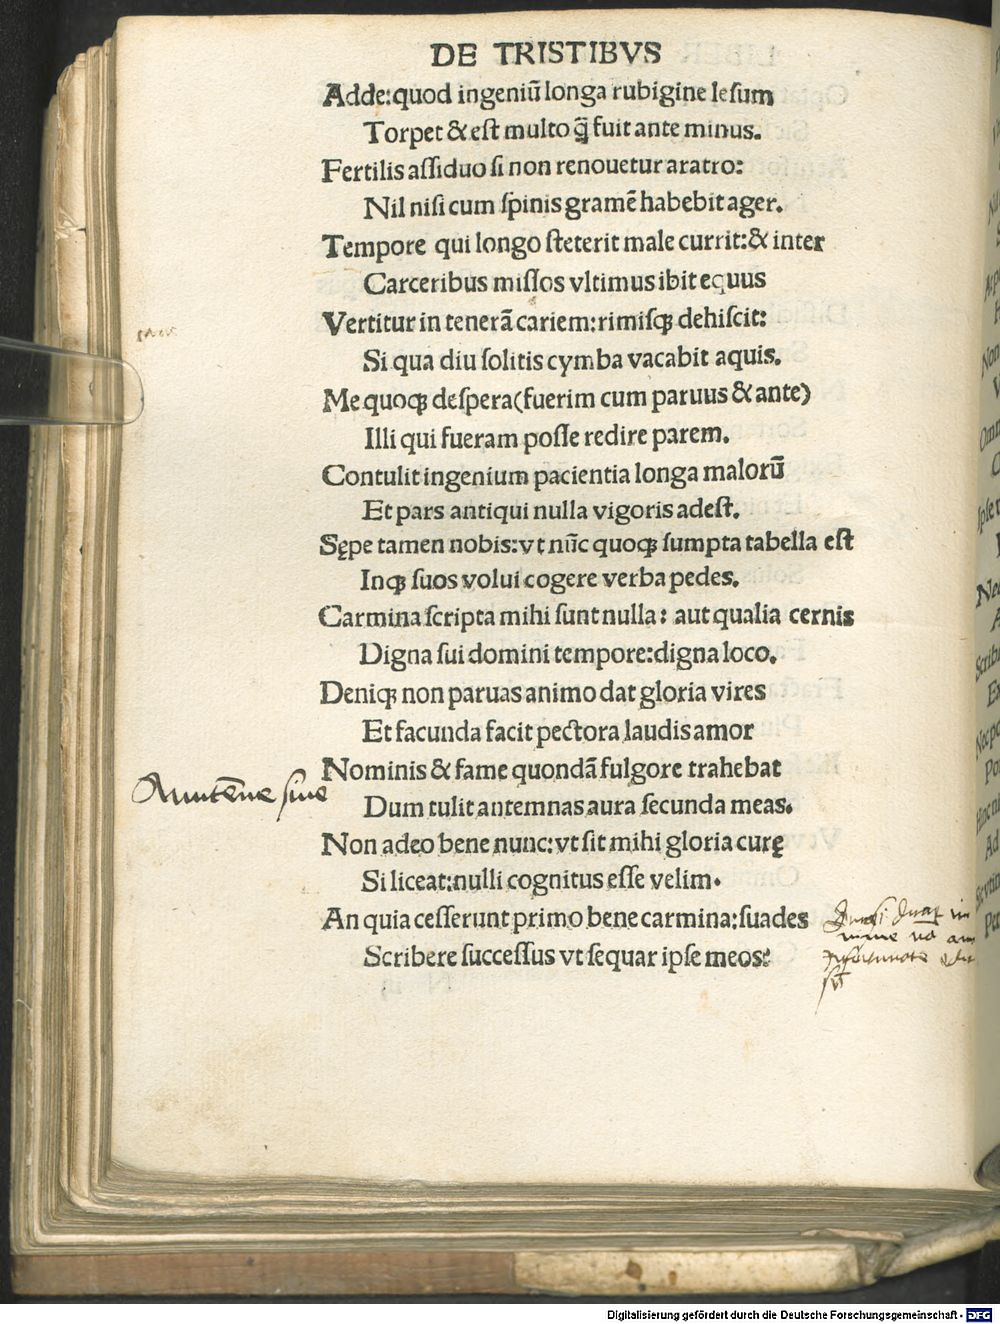 DE TRISTIBVS
Adde:quod ingeniū longa rubigine lesum
Torpet & est multo q̄ fuit ante minus.
Fertilis assiduo si non renouetur aratro:
Nil nisi cum spinis gramē habebit ager.
Tempore qui longo steterit male currit:& inter
Carceribus missos vltimus ibit equus
Vertitur in tenerā cariem:rimisqꝫ dehiscit:
Si qua diu solitis cymba vacabit aquis.
Me quoqꝫ despera(fuerim cum paruus & ante)
Illi qui fueram posse redire parem.
Contulit ingenium pacientia longa malorū
Et pars antiqui nulla vigoris adest.
Sępe tamen nobis:vt nūc quoqꝫ sumpta tabella est
Inqꝫ suos volui cogere verba pedes.
Carmina scripta mihi sunt nulla: aut qualia cernis
Digna sui domini tempore:digna loco.
Deniqꝫ non paruas animo dat gloria vires
Et facunda facit pectora laudis amor
Nominis & fame quondā fulgore trahebat
Dum tulit antemnas aura secunda meas.
Non adeo bene nunc:vt sit mihi gloria curę
Si liceat:nulli cognitus esse velim.
An quia cesserunt primo bene carmina:suades
Scribere successus vt sequar ipse meos?
Digitalisierung gefördert durch die Deutsche Forschungsgemeinschaft - DFG